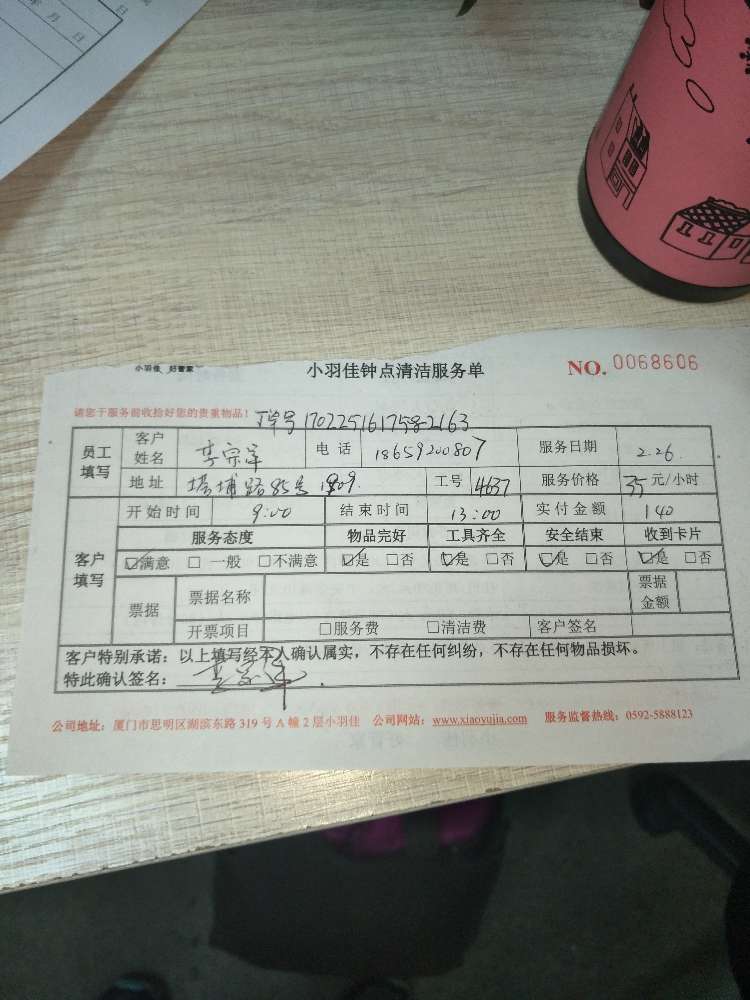 年 月 日
日
110
小羽佳 好管家
小羽佳钟点清洁服务单
NO. 0068606
请您于服务前收拾好您的贵重物品！
单号170225161758-2163
员工填写 客户姓名 李宗军 电话 18659200807 服务日期 2.26
地址 塔埔路85号 1909. 工号 4637 服务价格 35元/小时
客户填写 开始时间 9:00 结束时间 13:00 实付金额 140
服务态度 物品完好 工具齐全 安全结束 收到卡片
☑满意 □ 一般 □不满意 ☑是 □否 ☑是 □否 ☑是 □否 ☑是 □否
票据 票据名称 票据金额
开票项目 □服务费 □清洁费 客户签名
客户特别承诺：以上填写经本人确认属实，不存在任何纠纷，不存在任何物品损坏。
特此确认签名：
公司地址：厦门市思明区湖滨东路 319 号 A 幢 2 层小羽佳 公司网站：www.xiaoyujia.com 服务监督热线：0592-5888123